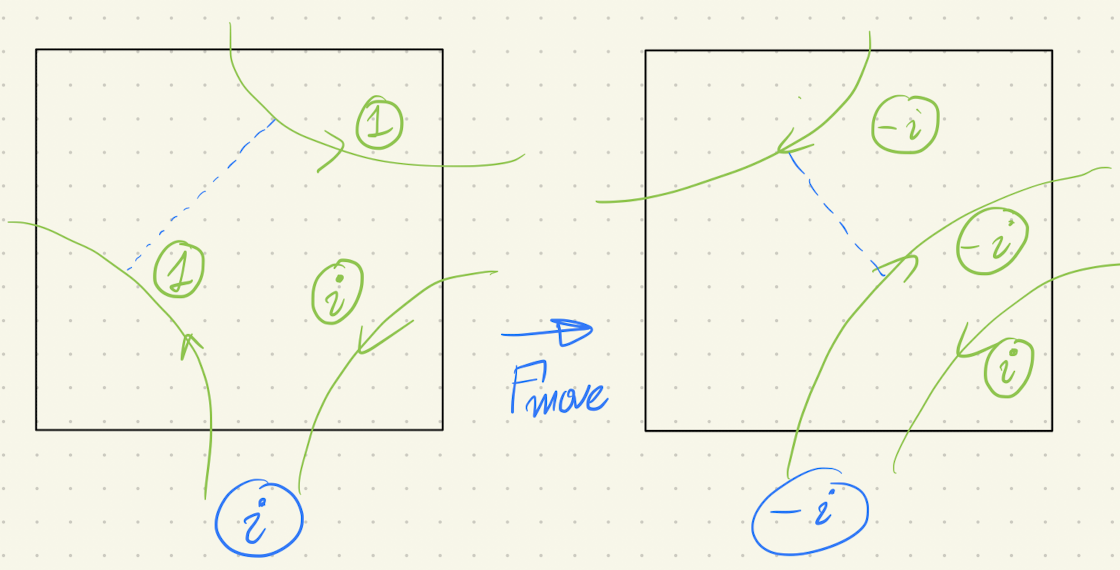 1
1
i
i
F move
-i
-i
i
-i